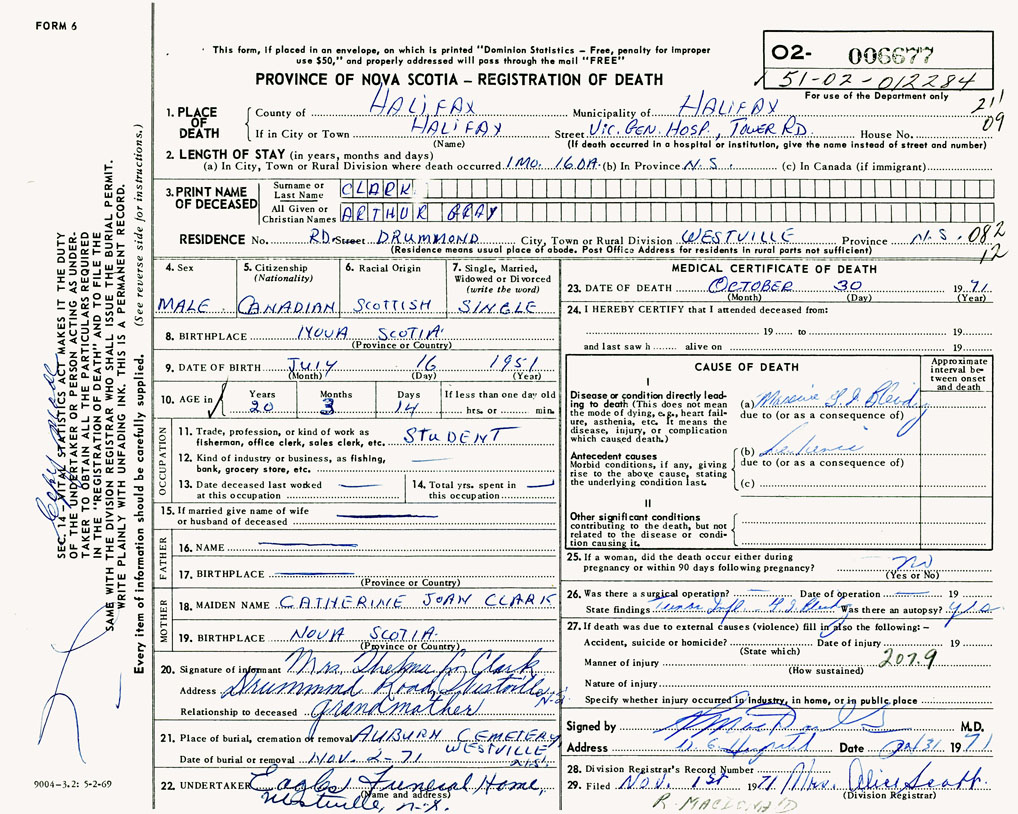 FORM 6
This form, if placed in an envelope, on which is printed "Dominion Statistics – Free, penalty for improper
use $50," and properly addressed will pass through the mail "FREE"
PROVINCE OF NOVA SCOTIA – REGISTRATION OF DEATH
O2- 006677
51-02-012284
For use of the Department only
211
09
1. PLACE OF DEATH
County of HALIFAX Municipality of HALIFAX
If in City or Town HALIFAX Street VIC. GEN. HOSP., TOWER RD. House No.
(Name) (If death occurred in a hospital or institution, give the name instead of street and number)
2. LENGTH OF STAY (in years, months and days)
(a) In City, Town or Rural Division where death occurred 1 MO. 16 DA. (b) In Province N.S. (c) In Canada (if immigrant)
3. PRINT NAME OF DECEASED
Surname or Last Name CLARK
All Given or Christian Names ARTHUR GRAY
RESIDENCE No. RD. Street DRUMMOND City, Town or Rural Division WESTVILLE Province N.S. 082
12
(Residence means usual place of abode. Post Office Address for residents in rural parts not sufficient)
4. Sex MALE
5. Citizenship (Nationality) CANADIAN
6. Racial Origin SCOTTISH
7. Single, Married, Widowed or Divorced (write the word) SINGLE
8. BIRTHPLACE NOVA SCOTIA
(Province or Country)
9. DATE OF BIRTH JULY 16 1951
(Month) (Day) (Year)
10. AGE in Years 20 Months 3 Days 14 If less than one day old hrs. or min.
OCCUPATION
11. Trade, profession, or kind of work as fisherman, office clerk, sales clerk, etc. STUDENT
12. Kind of industry or business, as fishing, bank, grocery store, etc.
13. Date deceased last worked at this occupation
14. Total yrs. spent in this occupation
15. If married give name of wife or husband of deceased
FATHER
16. NAME
17. BIRTHPLACE
(Province or Country)
MOTHER
18. MAIDEN NAME CATHERINE JOAN CLARK
19. BIRTHPLACE NOVA SCOTIA
(Province or Country)
20. Signature of informant Mrs. Thelma G. Clark
Address Drummond Road, Westville, N.S.
Relationship to deceased grandmother
21. Place of burial, cremation or removal AUBURN CEMETERY
WESTVILLE
Date of burial or removal NOV. 2-71
22. UNDERTAKER Eagles Funeral Home,
(Name and address)
Westville, N.S.
MEDICAL CERTIFICATE OF DEATH
23. DATE OF DEATH OCTOBER 30 1971
(Month) (Day) (Year)
24. I HEREBY CERTIFY that I attended deceased from:
19 to 19
and last saw h alive on 19
CAUSE OF DEATH
Approximate interval between onset and death
I
Disease or condition directly leading to death (This does not mean the mode of dying, e.g., heart failure, asthenia, etc. It means the disease, injury, or complication which caused death.)
(a) Massive G.I. Bleeding
due to (or as a consequence of)
Antecedent causes
Morbid conditions, if any, giving rise to the above cause, stating the underlying condition last.
(b) Leukemia
due to (or as a consequence of)
(c)
II
Other significant conditions contributing to the death, but not related to the disease or condition causing it.
25. If a woman, did the death occur either during pregnancy or within 90 days following pregnancy? no
(Yes or No)
26. Was there a surgical operation? Date of operation 19
State findings Was there an autopsy? yes
27. If death was due to external causes (violence) fill in also the following:–
Accident, suicide or homicide? Date of injury 19
(State which)
Manner of injury 207.9
(How sustained)
Nature of injury
Specify whether injury occurred in industry, in home, or in public place
Signed by M.D.
Address Date Oct 31 1971
28. Division Registrar's Record Number
29. Filed Nov. 1st 1971 Mrs. Alice Scott
(Division Registrar)
R. MACDONALD
SEC. 14 – VITAL STATISTICS ACT MAKES IT THE DUTY
OF THE UNDERTAKER OR PERSON ACTING AS UNDER-
TAKER TO OBTAIN ALL THE PARTICULARS REQUIRED
IN THE "REGISTRATION OF DEATH" AND TO FILE THE
SAME WITH THE DIVISION REGISTRAR WHO SHALL ISSUE THE BURIAL PERMIT.
WRITE PLAINLY WITH UNFADING INK. THIS IS A PERMANENT RECORD.
Every item of information should be carefully supplied. (See reverse side for instructions.)
9004-3.2: 5-2-69